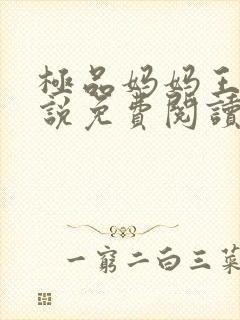 極品妈妈王
說免費閱讀
一窮二白三菜